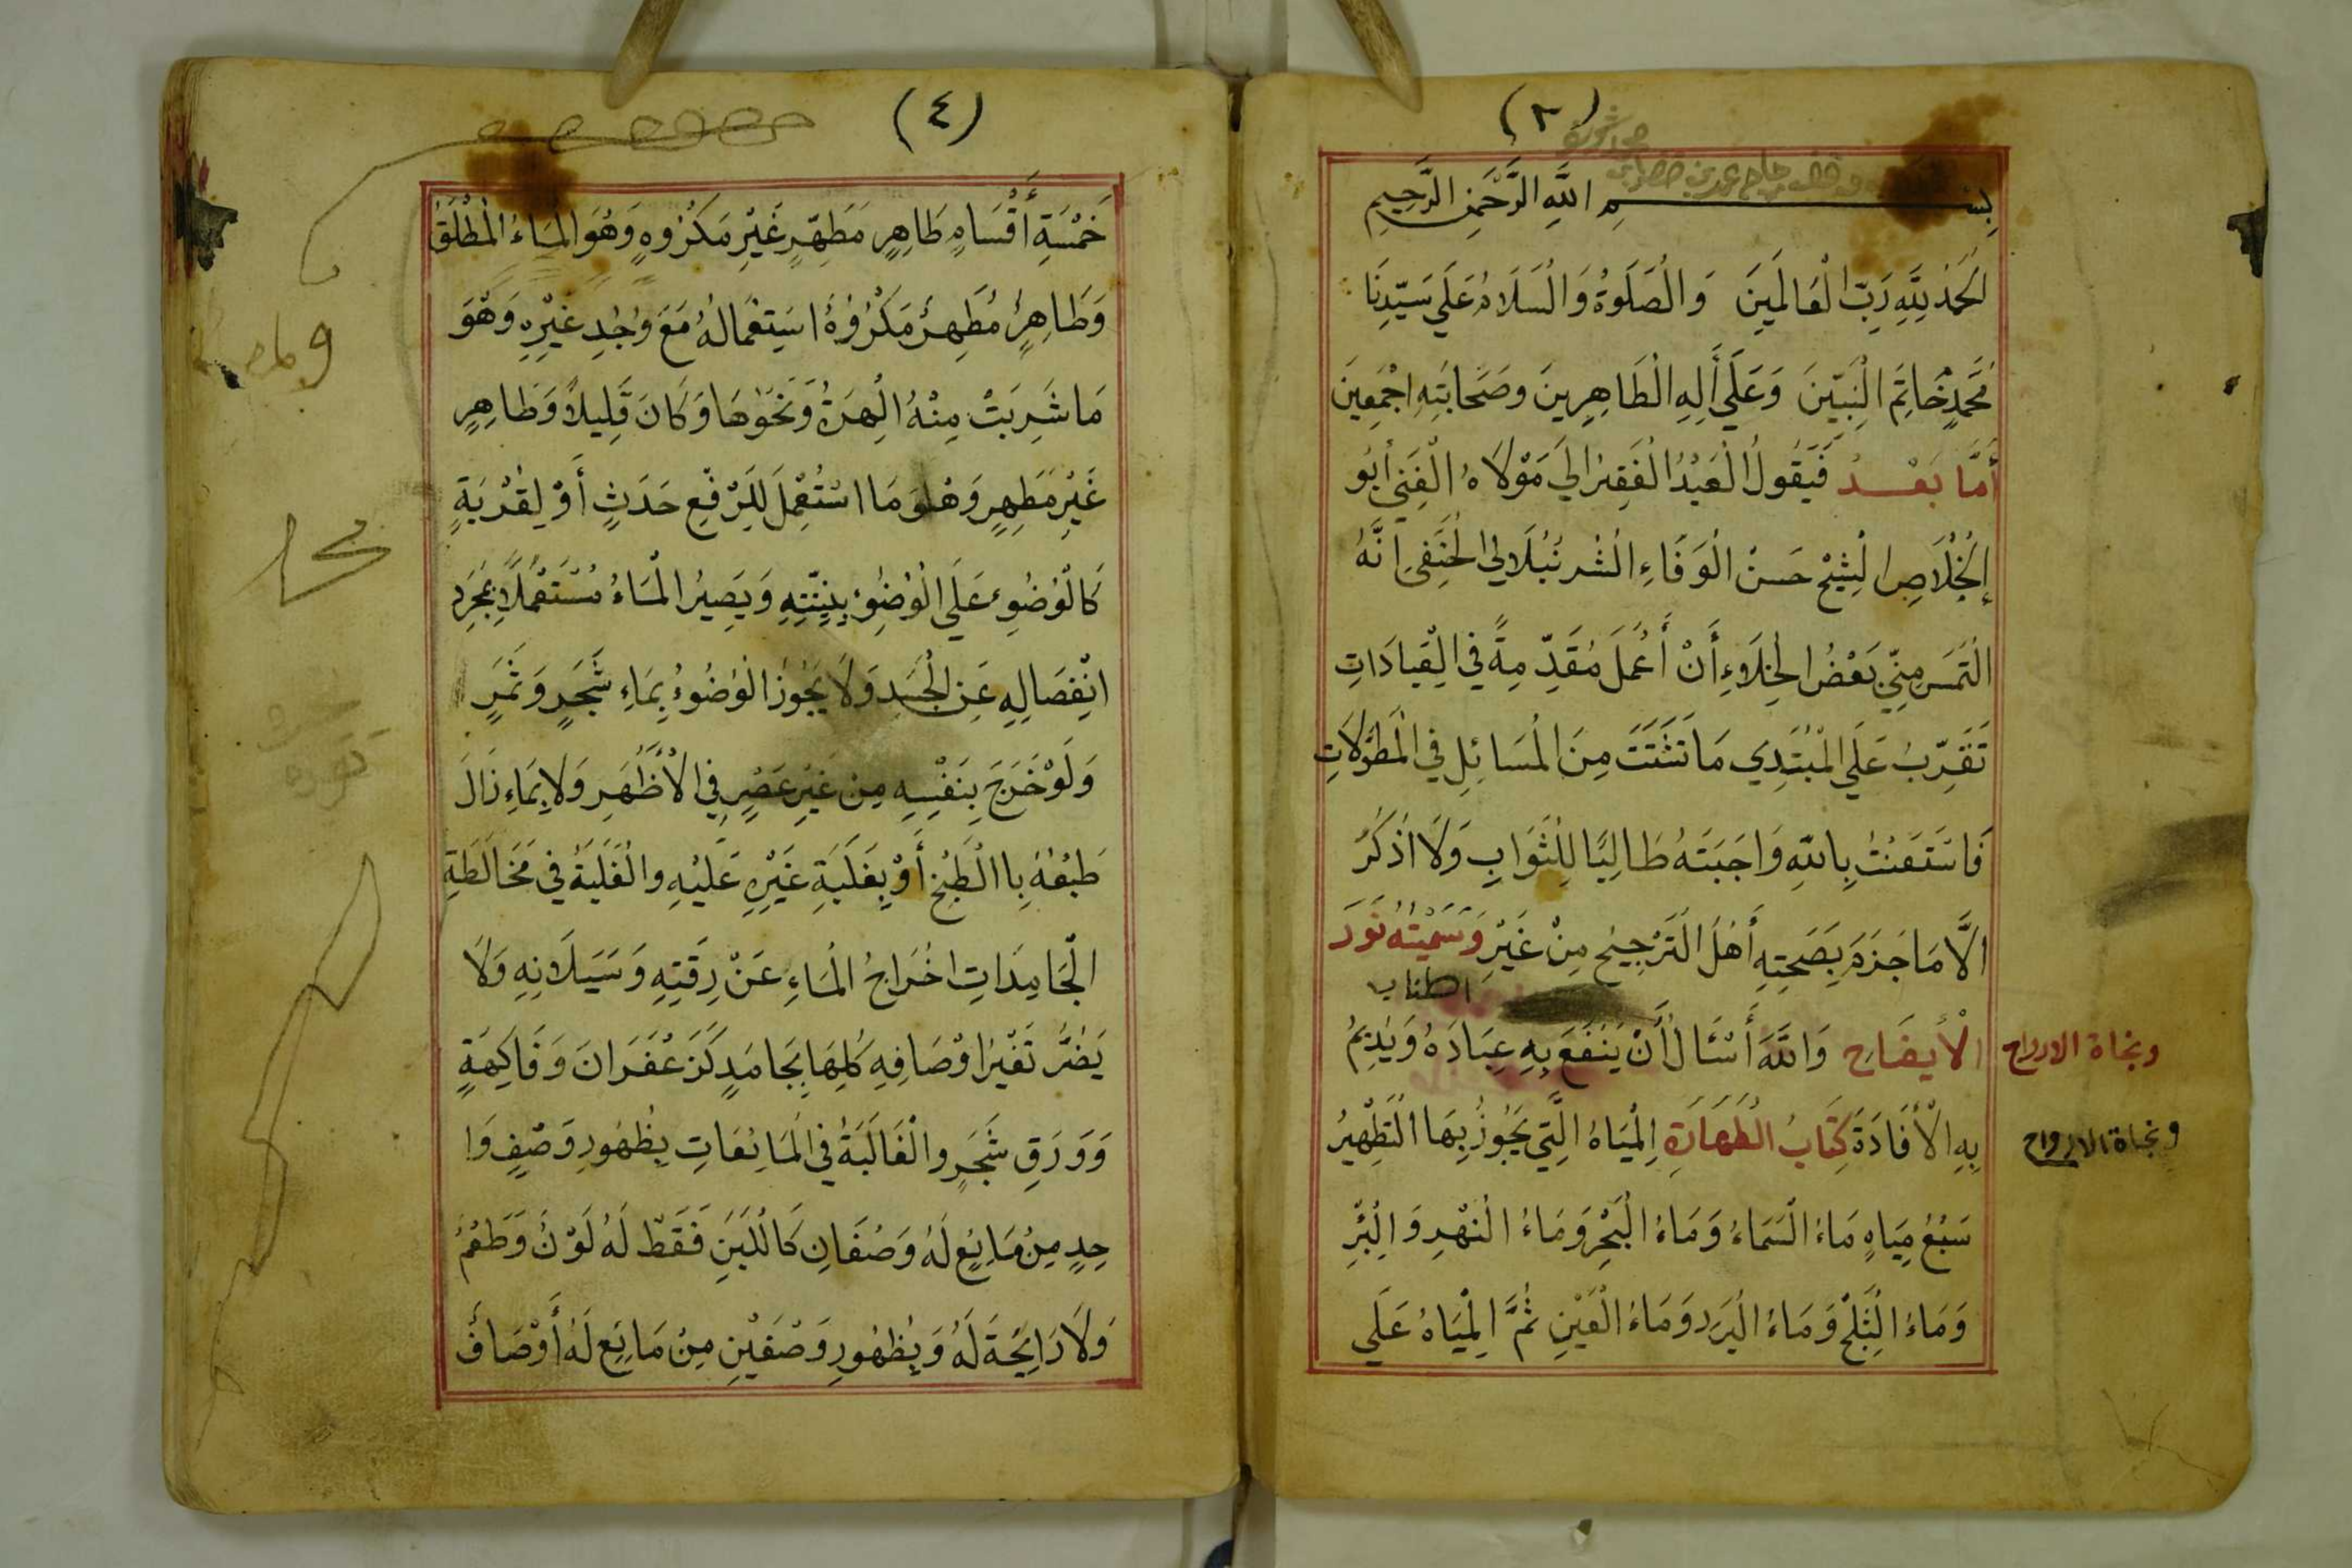 (٣)
بِسْمِ اللَّهِ الرَّحْمٰنِ الرَّحِيمِ
اَلْحَمْدُ لِلَّهِ رَبِّ الْعَالَمِينَ وَالْصَلَوةُ وَالْسَلَامُ عَلَي سَيِّدِنَا
مُحَمَّدٍ خَاتِمَ الْنَبِيّينَ وَعَلَي أَلِهِ الْطَاهِرِينَ وصَحَابَتِهِ اجْمَعِينَ
أَمَّا بَعْدُ فَيَقُولُ الْعَبْدُ الْفَقِيرُ الَي مَوْلَاهُ الْغَنِي أبُو
إلْخْلَاصِ الْشِيْخ حَسَنْ الْوَفَاءِ الْشُرنُبُلَالِي الْحَنَفِي اَنَّهُ
الْتَمَسَ مِنِّي بَعْضُ الْخِلَاءِ أَنْ أَعْمَلَ مُقَدِّمِةً فِي الْعِبَادَاتِ
تَقَرِّبُ عَلَي الْمُبْتَدِي مَا تَشَتَتَ مِنَ الْمَسَائِلِ فِي الْمَطَوَّلَاتِ
فَاسْتَعَنْتُ بِاللهِ وَاجَبَتَهُ طَالِبًا لِلْثَوَابِ وَلَا اَذْكُرُ
الَّا مَا جَزَمَ بِصَحِتِهِ أَهْلُ الْتَرْجِيحِ مِنْ غَيْرِ وَسَمَيْتُهُ نَوَرَ
اطناب
الْأيضَاحِ وَاللَّهَ أَسْئَالُ أَنْ يَنْفَعَ بِهِ عِبَادَهُ وَيْدِيمُ
ونجاة الارواح
بِهِ الْأَفَادَةَ كِتَابُ الْطَهَارَةِ اِلْمِيَاهُ الْتِي يَجُوزُ بِهَا الْتَطْهِيرُ
ونجاة الارواح
سَبْعُ مِيَاهٍ مَاءَ الْسَمَاءُ وَمَاءُ الْبَحْرِ وَمَاءُ الْنَهْرِ وَالْبِئْرِ
وَمَاءُ الْثَلْجُ وَمَاءُ الْبَرَدِ وَمَاءُ الْعَيْنِ ثُمَّ الْمِيَاهُ عَلَي
(٤)
خَمْسَةِ أَقْسَامٍ طَاهِرٍ مَطَهِّرٍ غَيْرِ مَكْرُوهٍ وَهُوَ الْمَاءُ الْمُطْلَقُ
وَطَاهِرٌ مُطَهِرٌ مَكْرُوْهٌ اسْتِعْمَالُهُ مَعَ وُجْدِ غَيْرِهِ وَهْوَ
مَا شَرِبَتْ مِنْهُ الْهِرَةُ وَنَحَوْهَا وَكَانَ قَلِيلاً وَطَاهِرٍ
غَيْرِ مَطَهِرٍ وَهْوَ مَا اسْتُعْمِلَ لِلَرْفِعِ حَدَثٍ أَوْ لِقُرْبَةٍ
كَالْوُضُوءِ عَلَي الْوُضُوءِ بِنِيَّتِهِ وَيَصِيرُ الْمَاءُ مُسْتَعْمَلًا بِمُجَرَدِ
انْفِصَالِهِ عَنِ الْجَسَدِ وَلَا يَجُوزُ الْوُضُوءُ بِمَاءِ شَجَرٍ وَثَمَرٍ
وَلَوْ خَرَجَ بِنَفْسِهِ مِنْ غَيْرِ عَصْرٍ فِي الْأَظْهَرِ وَلَا بِمَاءِ زَالَ
طَبْعُهُ بِاالْطَبْخِ أَوْ بِغَلَبَةِ غَيْرِهِ عَلَيْهِ والْغَلَبَةُ فِي مَخَالَطَةِ
الْجَامِدَاتِ اخْرَاجُ الْمَاءِ عَنْ رِقَتِهِ وَسَيَلَانِهِ وَلَا
يَضُرُّ تَغَيْرُ اوْصَافِهِ كُلِهَا بِجَامَدٍ كَزَعْفَرَانَ وَفَاكِهَةٍ
وَوَرَقِ شَجَرٍ والْغَالَبَةُ فِي الْمَائِعَاتِ بِظُهُورِ وَصْفٍ وَا
حِدٍ مِنْ مَائِعٍ لَهُ وَصْفَانِ كَالْلَبَنِ فَقَطْ لَهُ لَوْنُ وَطَعْمُ
وَلَا رَائِحَةَ لَهُ وَبِظُهُورِ وَصْفَيْنِ مِنْ مَائِعٍ لَهُ أَوْصَافُ